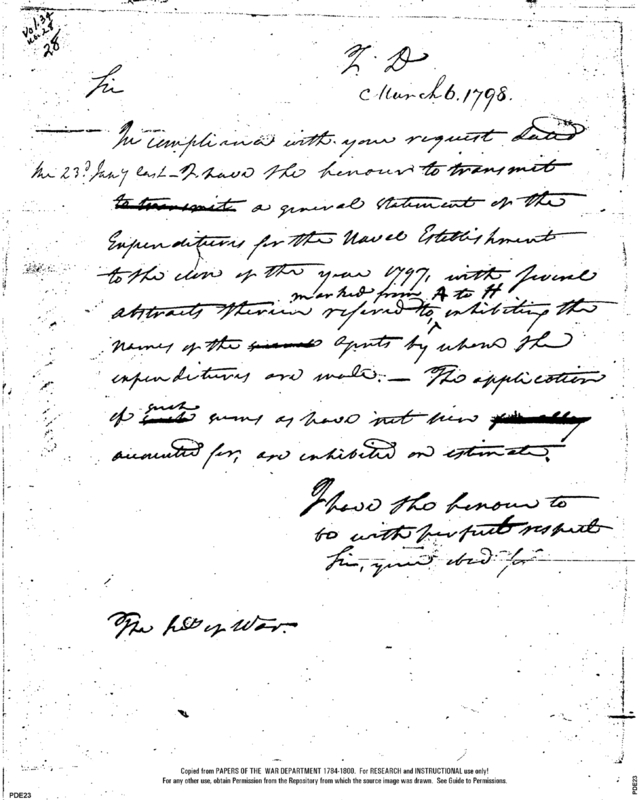 Vol. 34
No. 28
28
T. D
March 6. 1798.
Sir
In compliance with your request dated
the 23d Jany last - I have the honour to transmit
to transmit a general statement of the
Expenditures for the Naval Establishment
to the close of the year 1797, with several
marked from A to H
abstracts therein refered to, exhibiting the
names of the agents by whom the
expenditures are made. — The application
such
of such sums as have not been
accounted for, are exhibited on estimate.
I have the honour to
be with perfect respect
Sir, your obed
The Secy of War.
Copied from PAPERS OF THE WAR DEPARTMENT 1784-1800. For RESEARCH and INSTRUCTIONAL use only!
For any other use, obtain Permission from the Repository from which the source image was drawn. See Guide to Permissions.
PDE23
PDE23